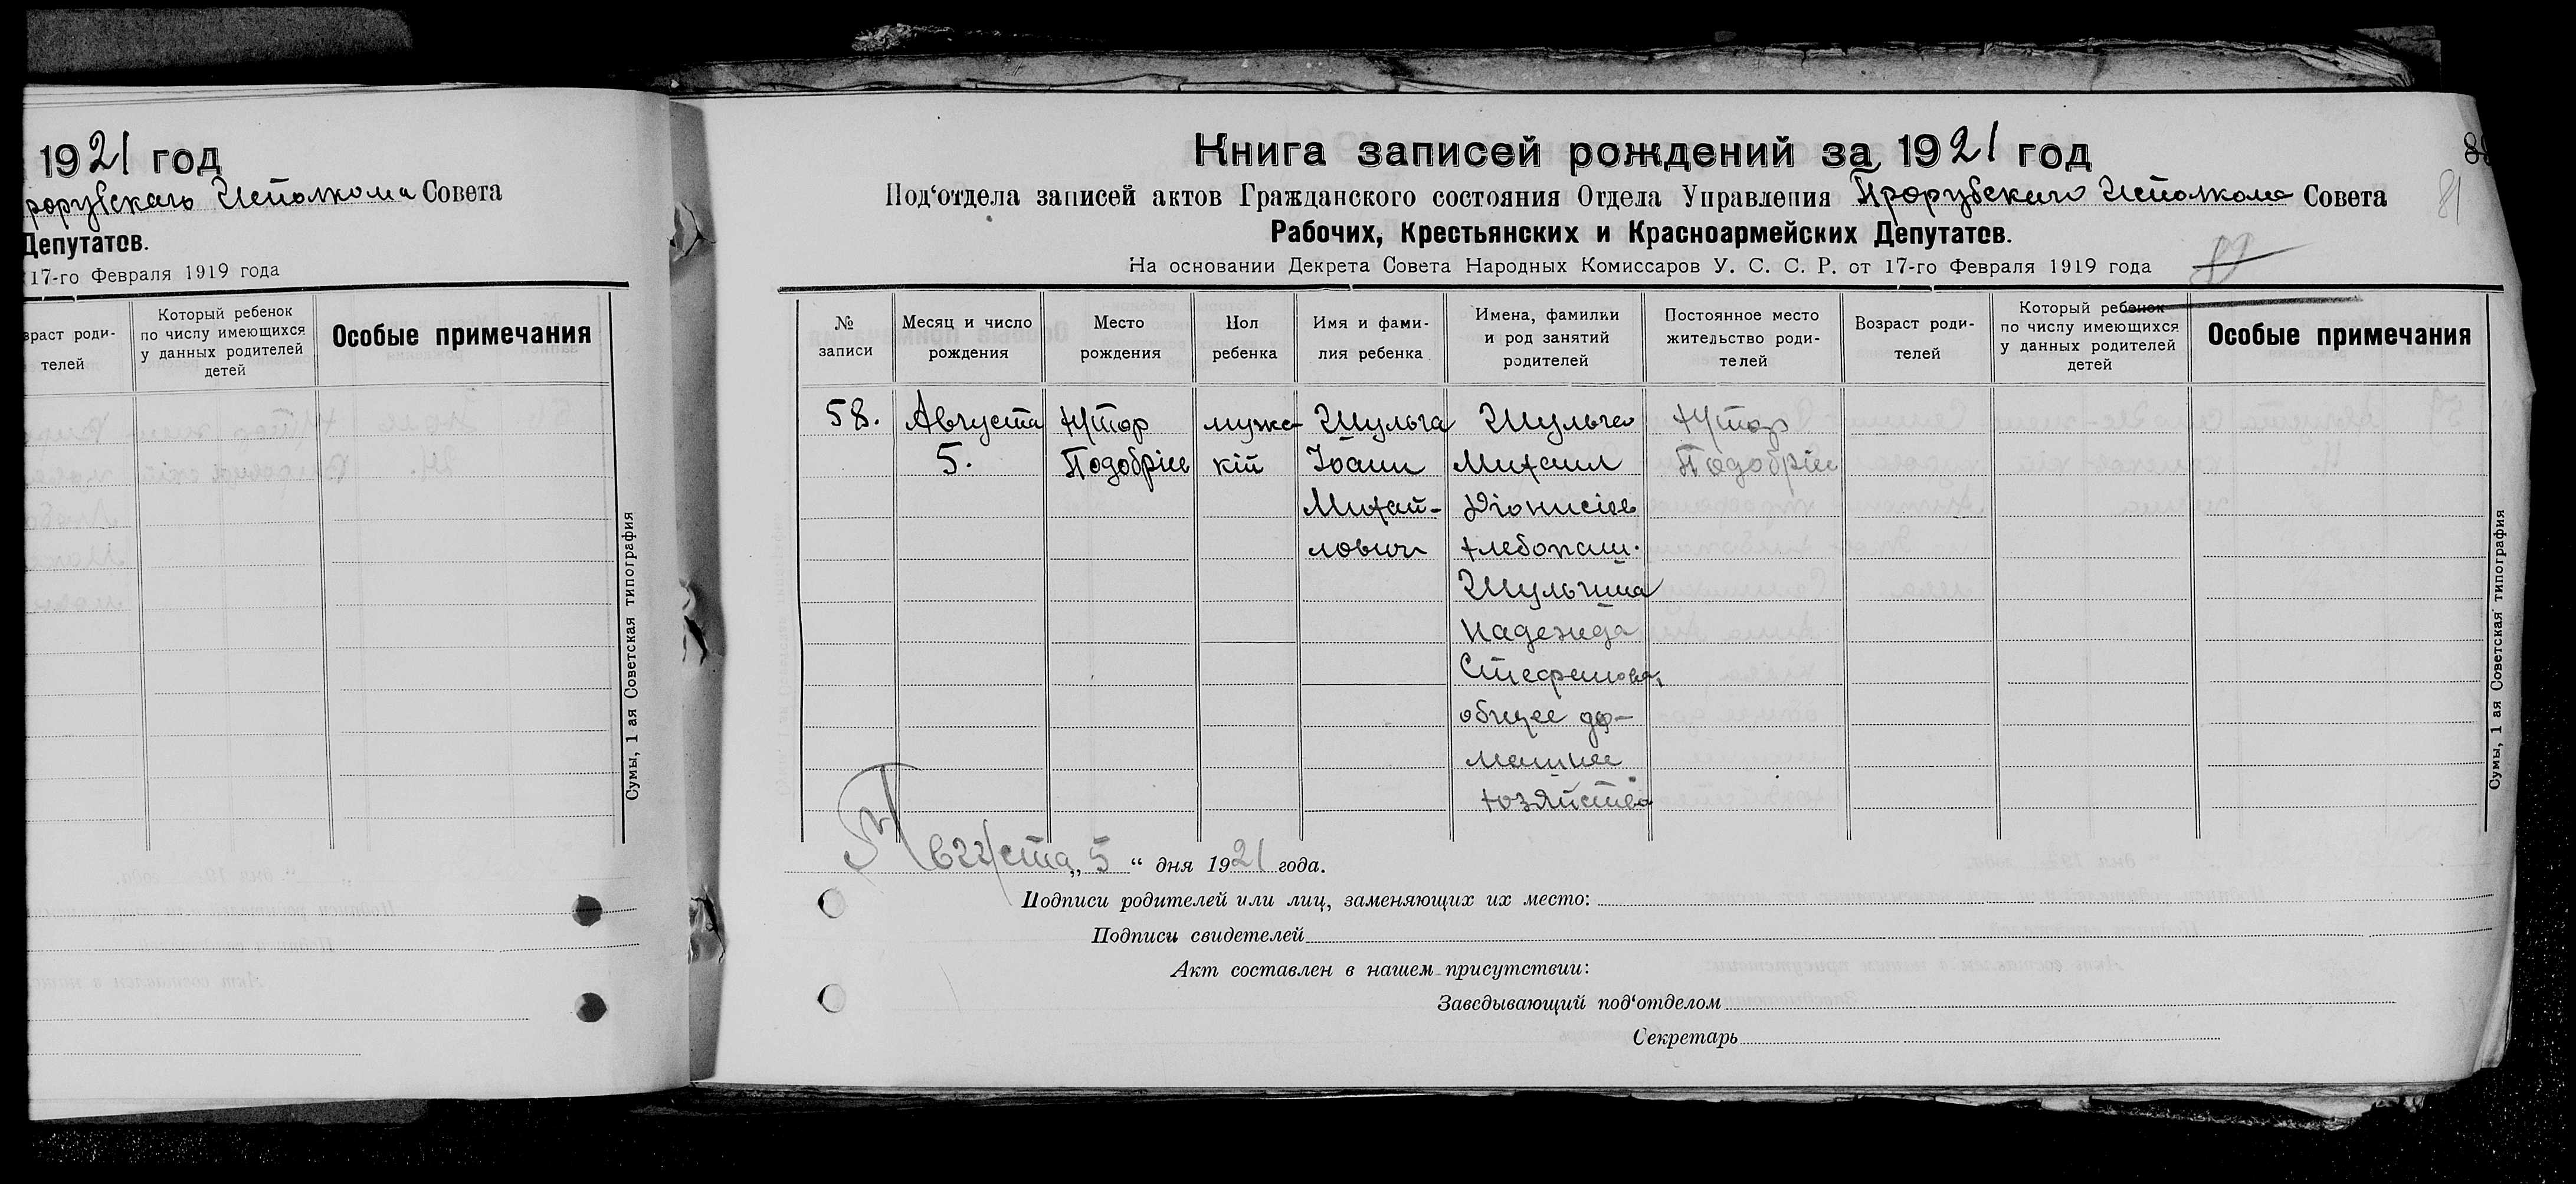 1921 год
рорубскаго Исполкома Совета
Депутатов.
17-го Февраля 1919 года
зраст роди-
телей
Который ребенок
по числу имеющихся
у данных родителей
детей
Особые примечания
Сумы, 1 ая Советская типография
Книга записей рождений за 1921 год
Под‘отдела записей актов Гражданского состояния Отдела Управления Прорубскаго Исполкома Совета
81
Рабочих, Крестьянских и Красноармейских Депутатов.
На основании Декрета Совета Народных Комиссаров У. С. С. Р. от 17-го Февраля 1919 года
№
записи
Месяц и число
рождения
Место
рождения
Пол
ребенка
Имя и фами-
лия ребенка
Имена, фамилии
и род занятий
родителей
Постоянное место
жительство роди-
телей
Возраст роди-
телей
Который ребенок
по числу имеющихся
у данных родителей
детей
Особые примечания
58.
Августа
5.
Хутор
Подобріев
мужс-
кій
Шульга
Іоанн
Михай-
лович
Шульга
Михаил
Діонисіев
хлебопаш.
Шульгина
Надежда
Стефанова,
общее до-
машнее
хозяйство
Хутор
Подобріев
Августа „ 5 “ дня 1921 года.
Подписи родителей или лиц, заменяющих их место:
Подписи свидетелей
Акт составлен в нашем присутствии:
Заведывающий под‘отделом
Секретарь
Сумы, 1 ая Советская типография